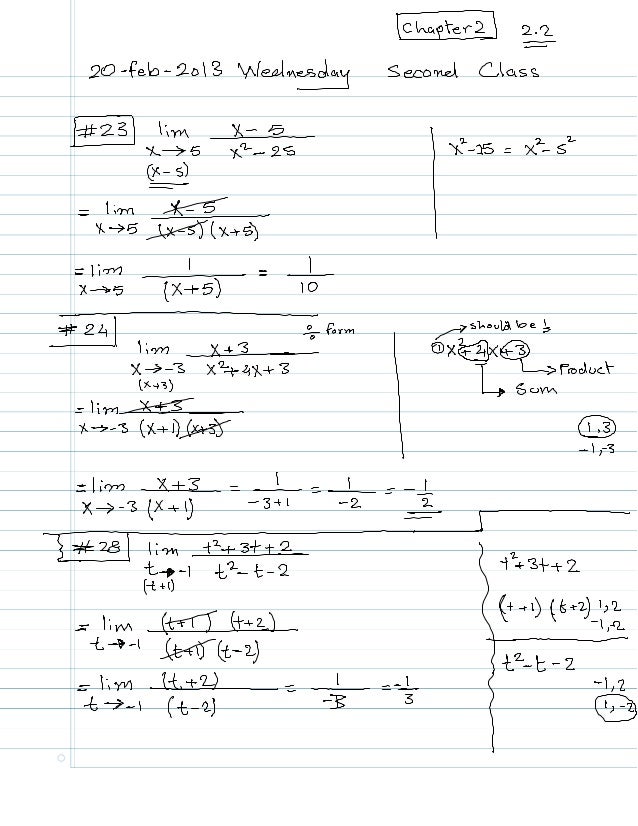 Chapter 2 2.2
20-feb-2013 Wednesday Second Class
#23 lim x→5 (x-5) x-5 / x²-25
x²-25 = x²-5²
= lim x→5 x-5 / (x-5)(x+5)
= lim x→5 1 / (x+5) = 1/10
#24 0/0 form
lim x→-3 (x+3) x+3 / x²+4x+3
→ should be 1
① x²+4x+3
→ Product
→ Sum
= lim x→-3 x+3 / (x+1)(x+3)
1,3
-1,-3
= lim x→-3 x+3 / (x+1) = 1/-3+1 = 1/-2 = -1/2
#28 lim t→-1 (t+1) t²+3t+2 / t²-t-2
t²+3t+2
(t+1)(t+2) 1,2
-1,-2
= lim t→-1 (t+1)(t+2) / (t+1)(t-2)
t²-t-2
-1,2
1,-2
= lim t→-1 (t+2) / (t-2) = 1/-3 = -1/3